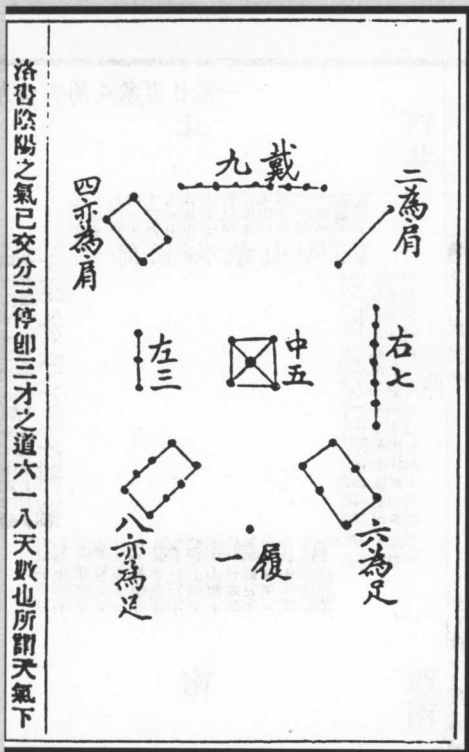 戴九
二為肩
四亦為肩
右七
中五
左三
六為足
履
八亦為足
洛書陰陽之氣已交分三停卽三才之道六一八天數也所謂天氣下